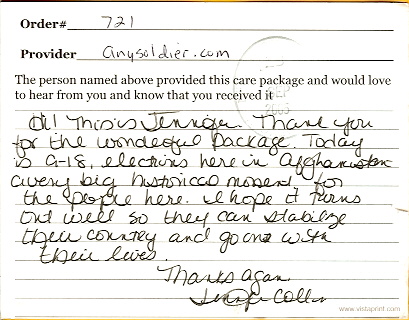 Order# 721
Provider anysoldier.com
The person named above provided this care package and would love
to hear from you and know that you received it
Hi! This is Jennifer. Thank you
for the wonderful package. Today
is 9-18, elections here in Afghanistan
a very big historical moment for
the people here. I hope it turns
out well so they can stabilize
their country and go on with
their lives.
Thanks again
Jennifer
www.vistaprint.com